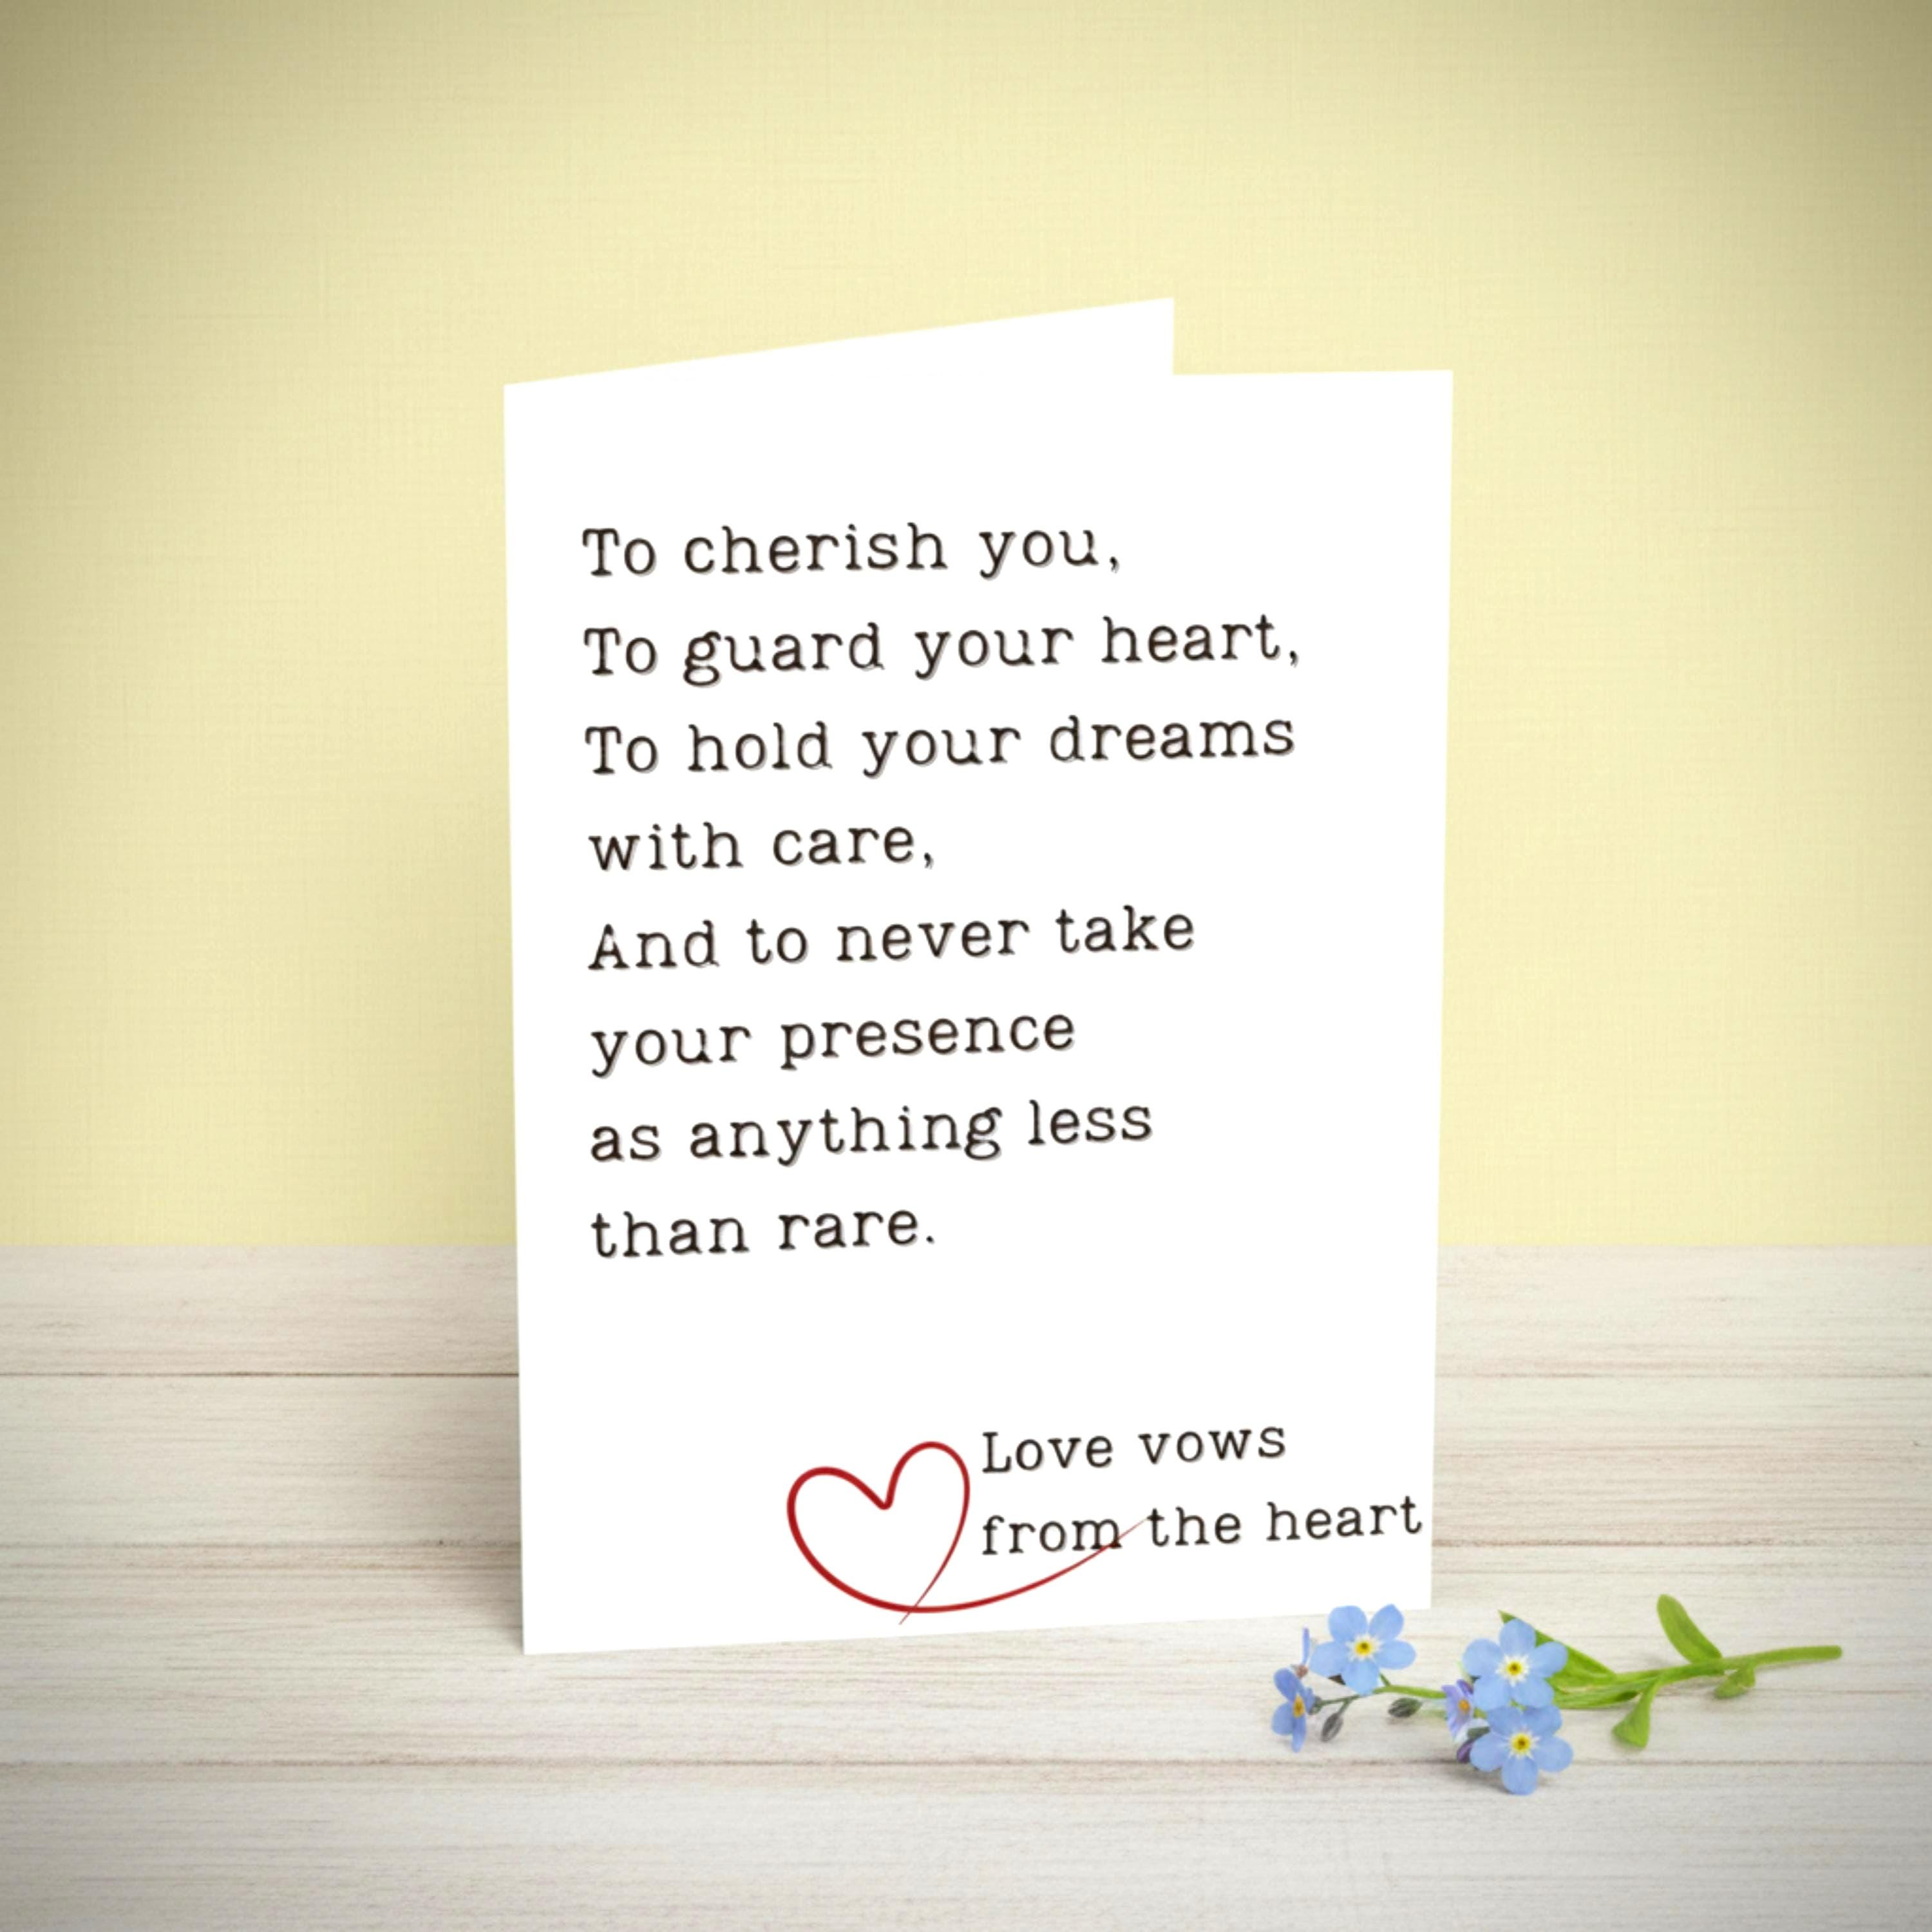 To cherish you,
To guard your heart,
To hold your dreams
with care,
And to never take
your presence
as anything less
than rare.
Love vows
from the heart